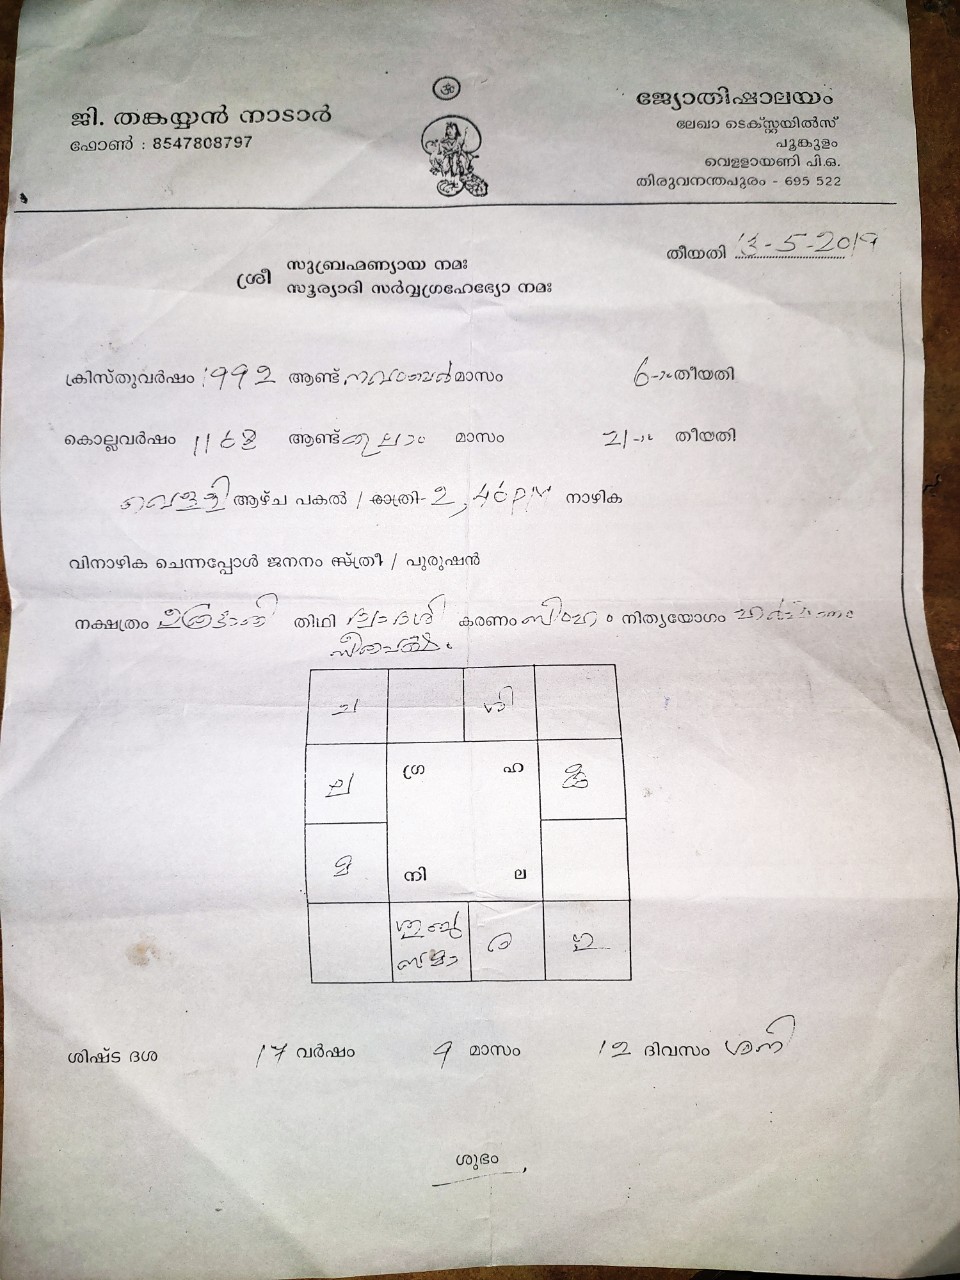 ജി. തങ്കയ്യൻ നാടാർ
ഫോൺ : 8547808797
ജ്യോതിഷാലയം
ലേഖാ ടെക്സ്റ്റയിൽസ്
പൂങ്കുളം
വെള്ളായണി പി.ഒ.
തിരുവനന്തപുരം - 695 522
തീയതി 13-5-2019
ശ്രീ സുബ്രഹ്മണ്യായ നമഃ
സൂര്യാദി സർവ്വഗ്രഹേഭ്യോ നമഃ
ക്രിസ്തുവർഷം 1992 ആണ്ട് നവംബർ മാസം 6-ം തീയതി
കൊല്ലവർഷം 1168 ആണ്ട് തുലാം മാസം 21-ം തീയതി
വെള്ളി ആഴ്ച പകൽ / രാത്രി- 2,40 PM നാഴിക
വിനാഴിക ചെന്നപ്പോൾ ജനനം സ്ത്രീ / പുരുഷൻ
നക്ഷത്രം ഉത്രട്ടാതി തിഥി ദ്വാദശി കരണം സിംഹം നിത്യയോഗം
ച ശി
ല ഗ്ര ഹ കു
മ നി ല
ര
ശിഷ്ട ദശ 17 വർഷം 9 മാസം 12 ദിവസം ശനി
ശുഭം